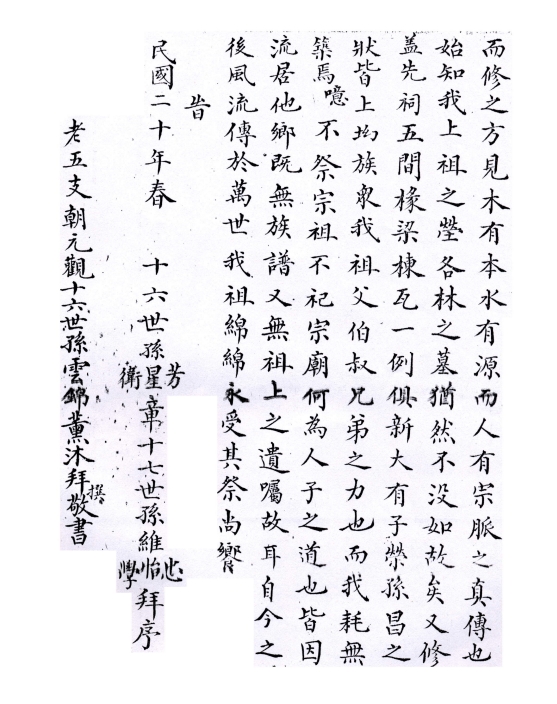 而修之方見木有本水有源而人有宗脈之真傳也
始知我上祖之塋各林之墓猶然不没如故矣又修
盖先祠五間椽梁棟瓦一例俱新大有子榮孫昌之
狀皆上均族衆我祖父伯叔兄弟之力也而我耗無
築焉噫不祭宗祖不祀宗廟何為人子之道也皆因
流居他鄉既無族譜又無祖上之遺囑故耳自今之
後風流傳於萬世我祖綿綿永受其祭尚饗
旹
民國二十年春 十六世孫星章十七世孫維怡拜序
芳
衛
心
學
老五支朝元觀十六世孫雲錦薰沐拜撰敬書